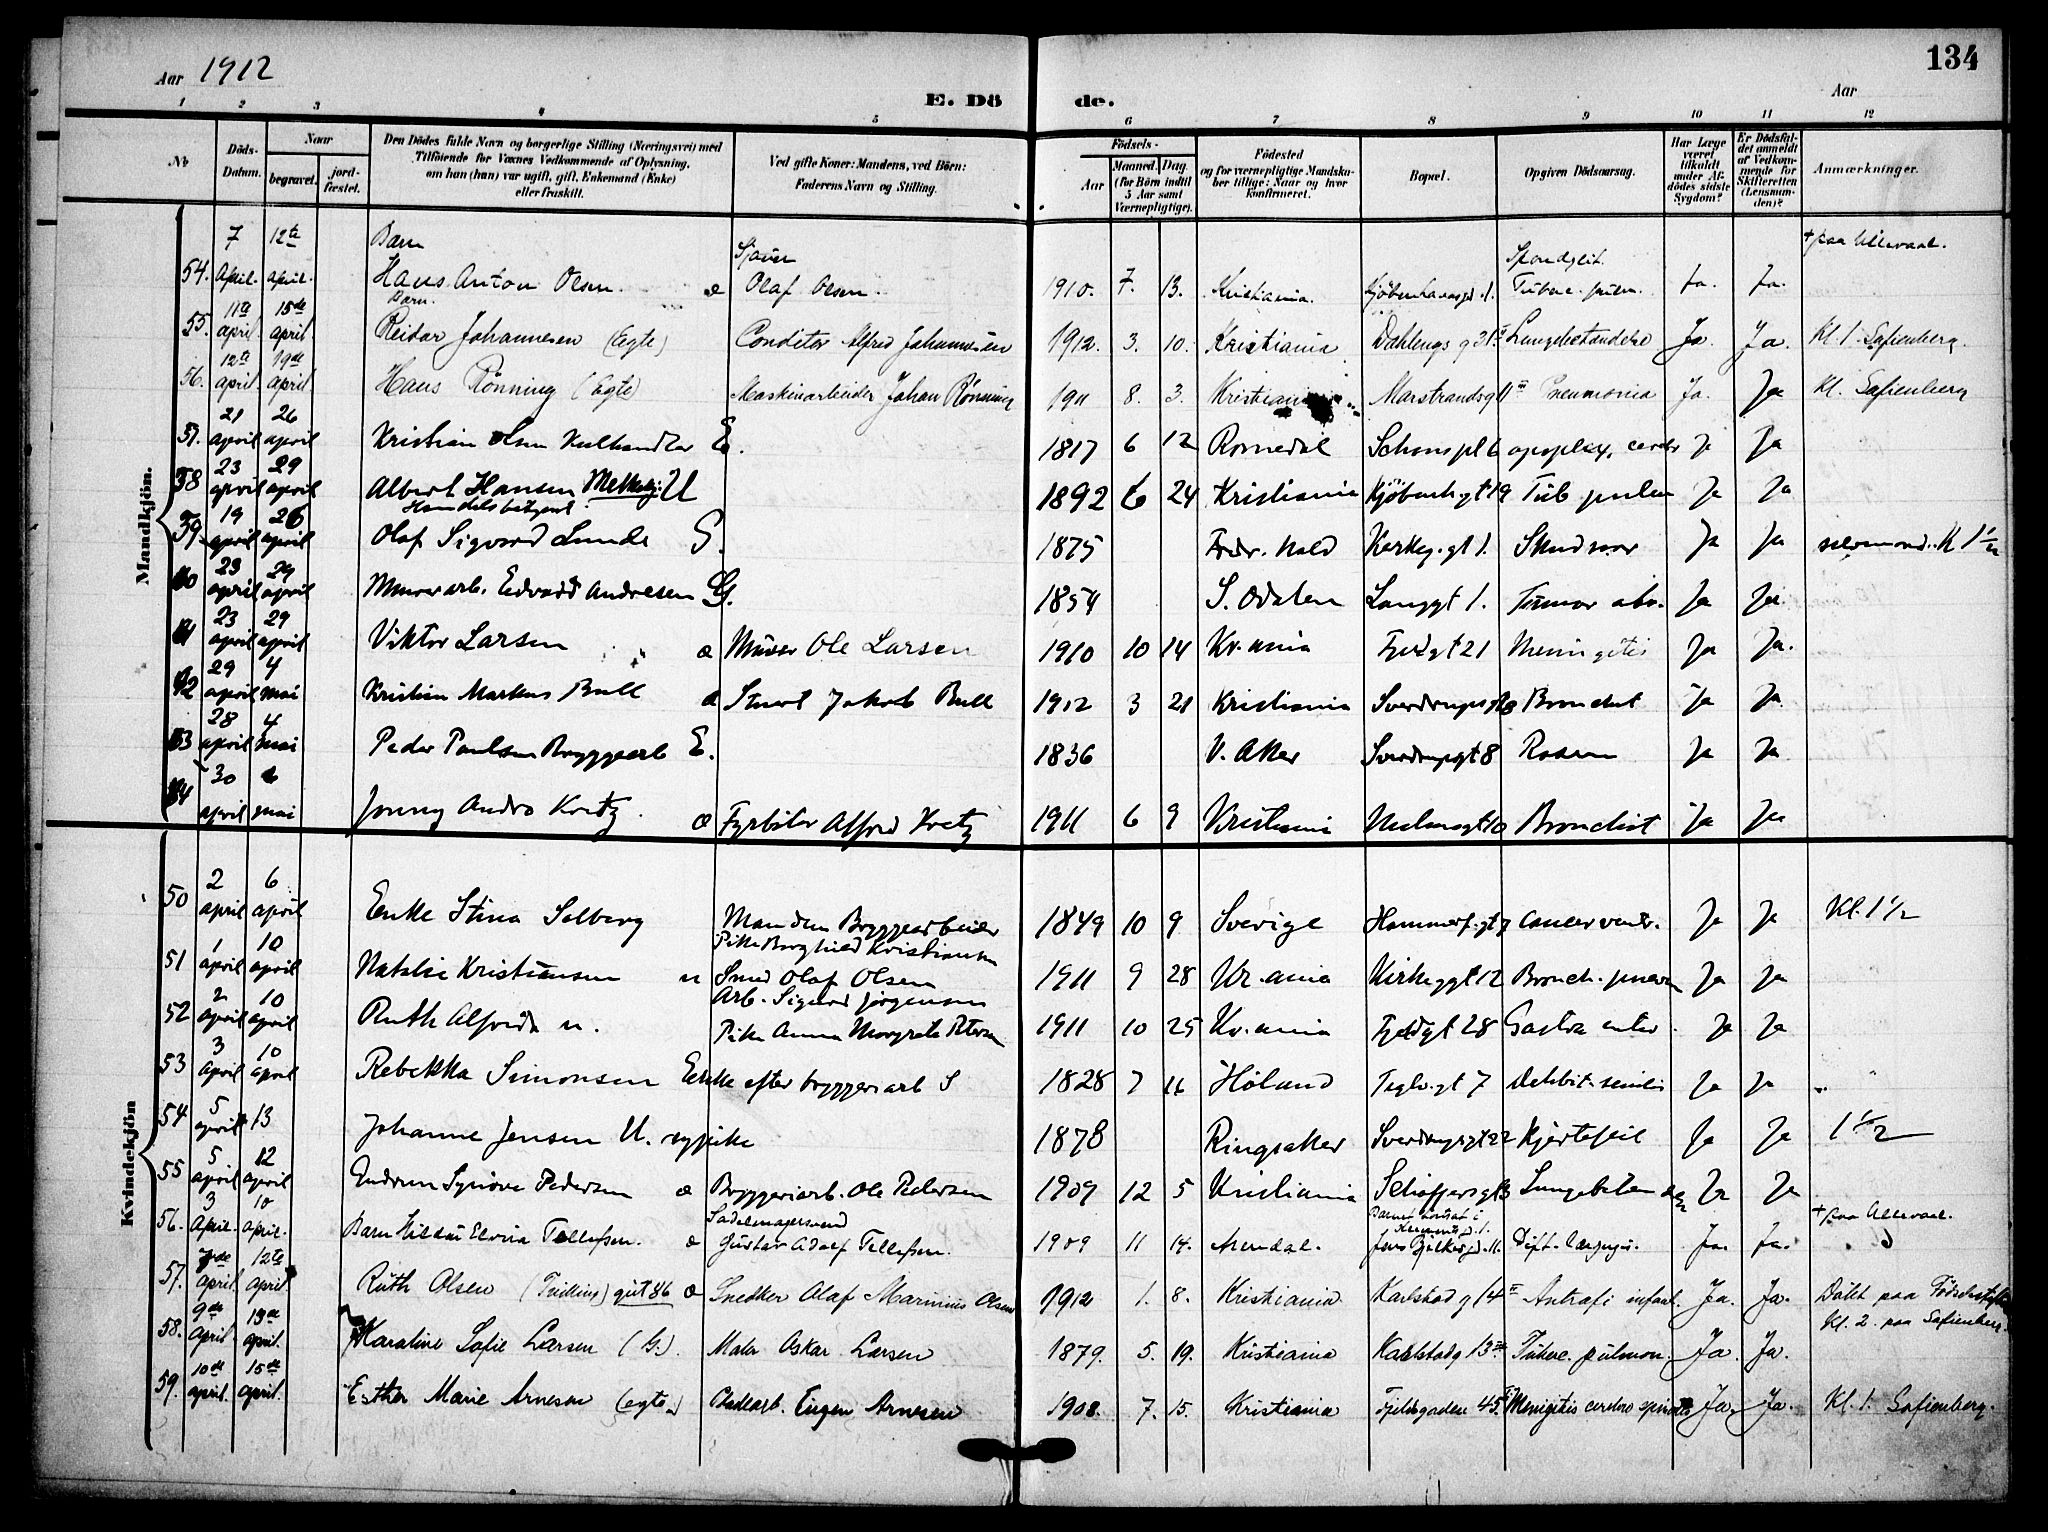 Aar 1912
134
E. Dö de.
Aar
1 2 3 4 5 6 7 8 9 10 11 12
No
Döds-Datum.
Naar
begravet.
jord-fæstet.
Den Dödes fulde Navn og borgerlige Stilling (Næringsvei) med
Tilföiende for Voxnes Vedkommende af Oplysning,
om han (hun) var ugift, gift, Enkemand (Enke)
eller fraskilt.
Ved gifte Koner: Mandens, ved Börn:
Faderens Navn og Stilling.
Födsels-
Aar
Maaned. Dag.
(for Börn indtil
5 Aar samt
Værnepligtige).
Födested
og for værnepligtige Mandska-
ber tillige: Naar og hvor
konfirmeret.
Bopæl.
Opgiven Dödsaarsag.
Har Læge
været
tilkaldt
under Af-
dödes sidste
Sygdom?
Er Dödsfal-
det anmeldt
af Vedkom-
mende for
Skifteretten
(Lensman-
den)?
Anmærkninger.
Mandkjön.
7 12te Barn + paa Ullevaal.
54. April. april. Hans Anton Olsen. æ Olaf Olsen. 1910. 7. 13. Kristiania. Tuberc. pulm. Ja. Ja.
Barn.
55. 11te april 15de april. Reidar Johannesen (Egte) Conditor Alfred Johannesen 1912. 3. 10. Kristiania Ja. Ja. Kl. 1. Sofienberg.
56. 12te april. 19de april. Hans Rønning (Egte) Maskinarbeider Johan Rønning 1911 8. 3. Kristiania Marstrandsg 11 Pneumonia Ja. Ja Kl. Sofienberg
57. 21 april 26 april Kristian Olsen Kulhandler E. 1817 6 12 Romedal Schouspl 6 apoplex. cerebr Ja Ja
58 23 april 29 april Albert Hansen U 1892 6 24 Kristiania Kjøbenh.gt 19 Tub pulm Ja Ja
59 19 april 26 april Olaf Sigvard Lunde G. 1875 Fredr. hald Kirkeg.gt 1. Skudsaar Ja Ja selvmord. Kl 1 1/2
60 23 april 29 april Murerarb. Edvard Andresen G. 1854 S. Odalen Langgt 1. Tumor abd. Ja Ja.
61 23 april 29 april Viktor Larsen æ Murer Ole Larsen 1910 10 14 Kr.ania Fjeldgt 21 Meningitis Ja Ja.
62 29 april 4 mai Kristian Markus Bull æ Jakob Bull 1912 3 21 Kristiania Bronchit Ja Ja
63 28 april 4 mai Peder Paulsen Bryggearb E. 1836 V. Aker Sverdrupgt 8 Rosen Ja Ja
64 30 april 6 mai Jonny Andro Kretz. æ Fyrbøter Alfred Kretz 1911 6 9 Kristiania Bronchit Ja Ja
Kvindekjön
50 2 april 6 april Enke Stina Solberg Manden Bryggearbeider 1849 10 9 Sverige Hammerf.gt 7 Cancer ventr. Ja Ja Kl. 1 1/2
Pike Borghild Kristiansen
51 1 april 10 april Natalie Kristiansen u Smed Olaf Olsen 1911 9 28 Kr.ania Kirkeggt 12 Bronch. pneum Ja Ja
Arb. Sigurd Jørgensen
52 2 april 10 april Ruth Alfrida u. Pike Anna Margrete Petersen 1911 10 25 Kr.ania Fjeldgt 28 Gastro enter Ja Ja
53 3 april 10 april Rebekka Simonsen Enke efter bryggeriarb S 1828 7 16 Høland Teglv.gt 7 Debilit. senilis Ja Ja
54 5 april 13 Johanne Jensen U. sypike 1878 Ringsaker Sverdrupsgt 22 Hjertefeil Ja Ja 1 1/2
55 5 april 12 april Gudrun Synøve Pedersen æ Bryggeriarb. Ole Pedersen 1909 12 5 Kristiania Lungebeten Ja Ja
Sadelmagersvend + paa Ullevaal.
56. 3 April. 10 april. Barn Elvira Tellefsen. æ Gustav Adolf Tellefsen. 1909 11 14. Arendal. Jens Bjelkesgd. 11. Dift. laryngis. Ja. Ja.
57. 7de april 12te april. Ruth Olsen (Tvilling) æ Snedker Olaf Marinius Olsen 1912 1. 8. Kristiania Karlstadg 14 Antrofi infant. Ja. Ja. Døbt paa Fødselsstift
Kl. 2. paa Sofienberg.
58. 9de april. 13de april. Karoline Sofie Larsen (G). Maler Oskar Larsen 1879. 5. 19. Kristiania Karlstadg 13 Tuberc. pulmon. Ja. Ja.
59. 10de april. 15de april. Esther Marie Arnesen (egte) Eugen Arnesen 1908. 7. 15. Kristiania Fjeldgaden 45 Menigitis cerebro spinalis Ja. Ja. Kl. 1. Sofienberg.